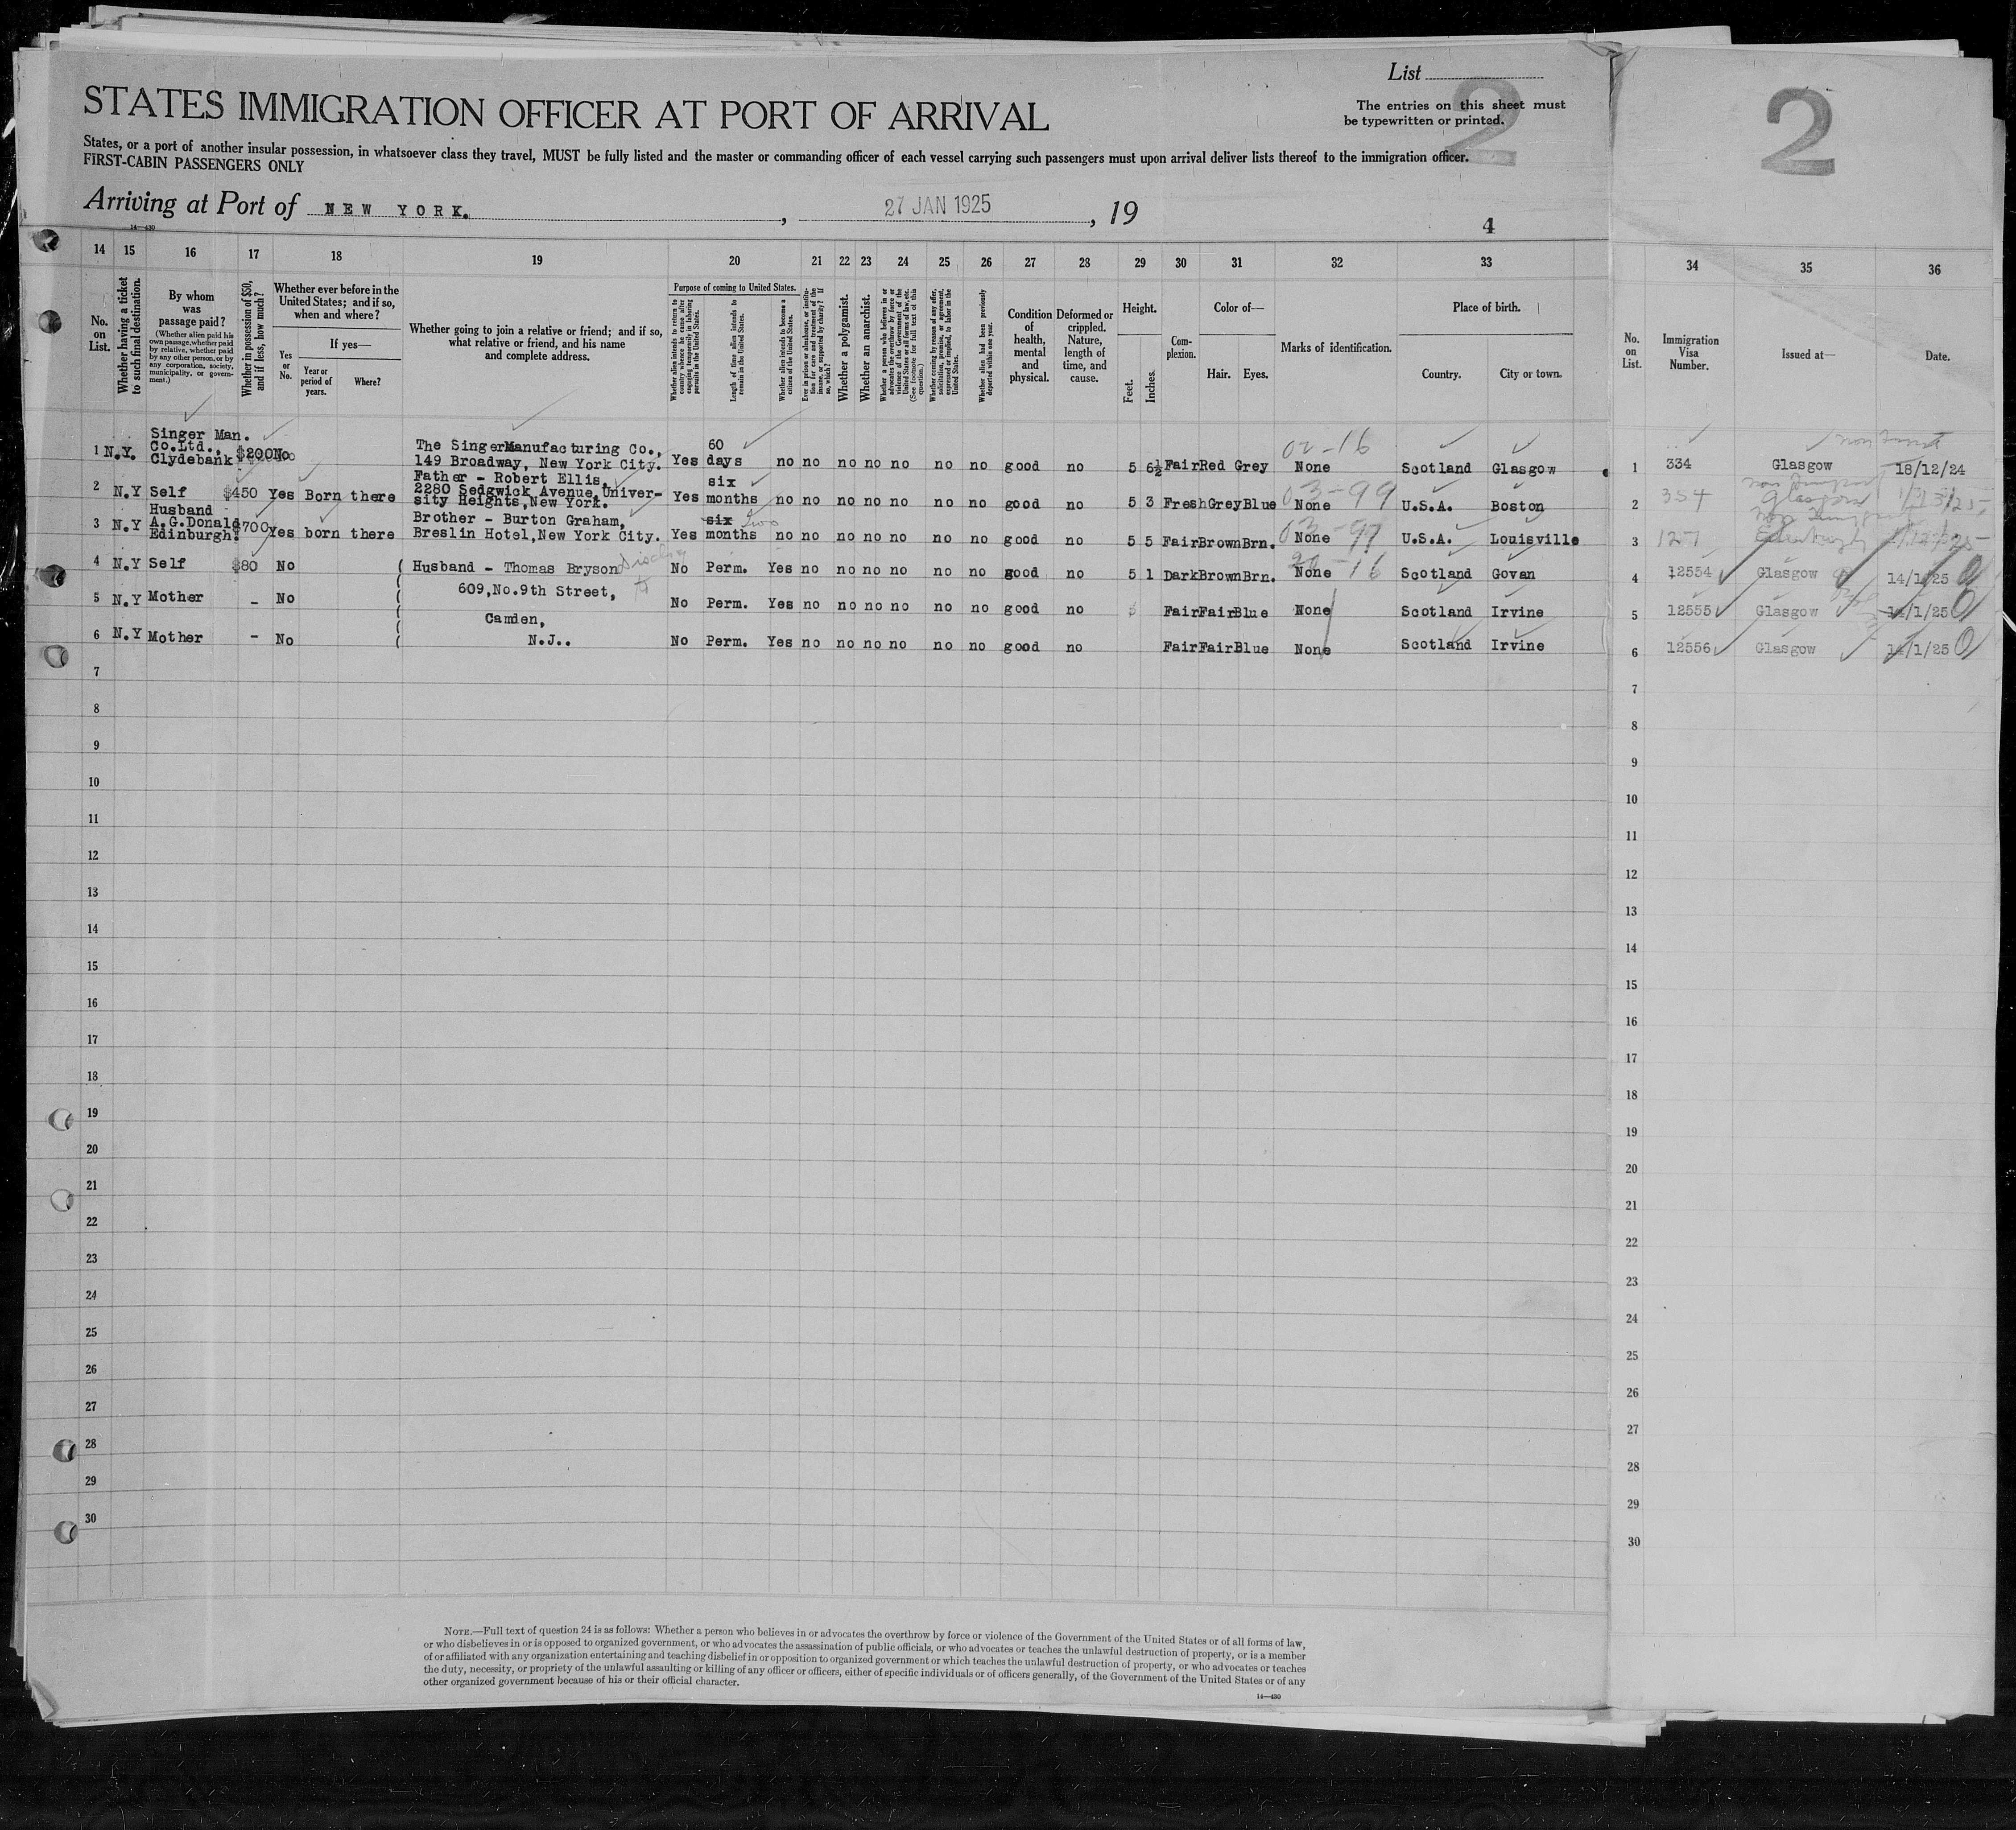 List
2
2
STATES IMMIGRATION OFFICER AT PORT OF ARRIVAL
The entries on this sheet must
be typewritten or printed.
States, or a port of another insular possession, in whatsoever class they travel, MUST be fully listed and the master or commanding officer of each vessel carrying such passengers must upon arrival deliver lists thereof to the immigration officer.
FIRST-CABIN PASSENGERS ONLY
Arriving at Port of NEW YORK. , 27 JAN 1925 , 19
14—430
4
14 15 16 17 18 19 20 21 22 23 24 25 26 27 28 29 30 31 32 33 34 35 36
No. on List.
Whether having a ticket to such final destination.
By whom was passage paid?
(Whether alien paid his own passage, whether paid by relative, whether paid by any other person, or by any corporation, society, municipality, or government.)
Whether in possession of $50, and if less, how much?
Whether ever before in the United States; and if so, when and where?
Yes or No.
If yes—
Year or period of years.
Where?
Whether going to join a relative or friend; and if so, what relative or friend, and his name and complete address.
Purpose of coming to United States.
Whether alien intends to return to country whence he came after engaging temporarily in laboring pursuits in the United States.
Length of time alien intends to remain in the United States.
Whether alien intends to become a citizen of the United States.
Ever in prison or almshouse, or institution for care and treatment of the insane, or supported by charity? If so, which?
Whether a polygamist.
Whether an anarchist.
Whether a person who believes in or advocates the overthrow by force or violence of the Government of the United States or all forms of law, etc. (See footnote for full text of this question.)
Whether coming by reason of any offer, solicitation, promise, or agreement, expressed or implied, to labor in the United States.
Whether alien had been previously deported within one year.
Condition of health, mental and physical.
Deformed or crippled. Nature, length of time, and cause.
Height.
Feet.
Inches.
Complexion.
Color of—
Hair. Eyes.
Marks of identification.
Place of birth.
Country. City or town.
No. on List.
Immigration Visa Number.
Issued at—
Date.
1 N.Y. Singer Man. Co.Ltd., Clydebank $200 No The Singer Manufacturing Co., 149 Broadway, New York City. Yes 60 days no no no no no no no good no 5 6½ Fair Red Grey 02-16 None Scotland Glasgow 1 334 Glasgow 18/12/24
2 N.Y Self $450 Yes Born there Father - Robert Ellis, 2280 Sedgwick Avenue, University Heights, New York. Yes six months no no no no no no no good no 5 3 Fresh Grey Blue 03-99 None U.S.A. Boston 2 354 Glasgow
3 N.Y Husband A.G.Donald Edinburgh. $700 Yes born there Brother - Burton Graham, Breslin Hotel, New York City. Yes six two months no no no no no no no good no 5 5 Fair Brown Brn. 03-99 None U.S.A. Louisville 3 127 Edinburgh
4 N.Y Self $80 No ( Husband - Thomas Bryson No Perm. Yes no no no no no no good no 5 1 Dark Brown Brn. None Scotland Govan 4 12554 Glasgow 14/1/25
5 N.Y Mother - No ( 609, No.9th Street, Camden, No Perm. Yes no no no no no no good no Fair Fair Blue None Scotland Irvine 5 12555 Glasgow 14/1/25
6 N.Y Mother - No ( N.J.. No Perm. Yes no no no no no no good no Fair Fair Blue None Scotland Irvine 6 12556 Glasgow 14/1/25
7 7
8 8
9 9
10 10
11 11
12 12
13 13
14 14
15 15
16 16
17 17
18 18
19 19
20 20
21 21
22 22
23 23
24 24
25 25
26 26
27 27
28 28
29 29
30 30
NOTE.—Full text of question 24 is as follows: Whether a person who believes in or advocates the overthrow by force or violence of the Government of the United States or of all forms of law,
or who disbelieves in or is opposed to organized government, or who advocates the assassination of public officials, or who advocates or teaches the unlawful destruction of property, or is a member
of or affiliated with any organization entertaining and teaching disbelief in or opposition to organized government or which teaches the unlawful destruction of property, or who advocates or teaches
the duty, necessity, or propriety of the unlawful assaulting or killing of any officer or officers, either of specific individuals or of officers generally, of the Government of the United States or of any
other organized government because of his or their official character.
14—430